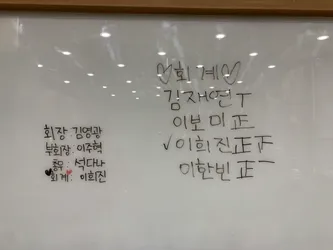 회장 김영광
부회장: 이주혁
총무: 석다나
회계: 이희진
♡회계♡
김재연 丅
이보미 正
✓이희진 正正
이한빈 正一